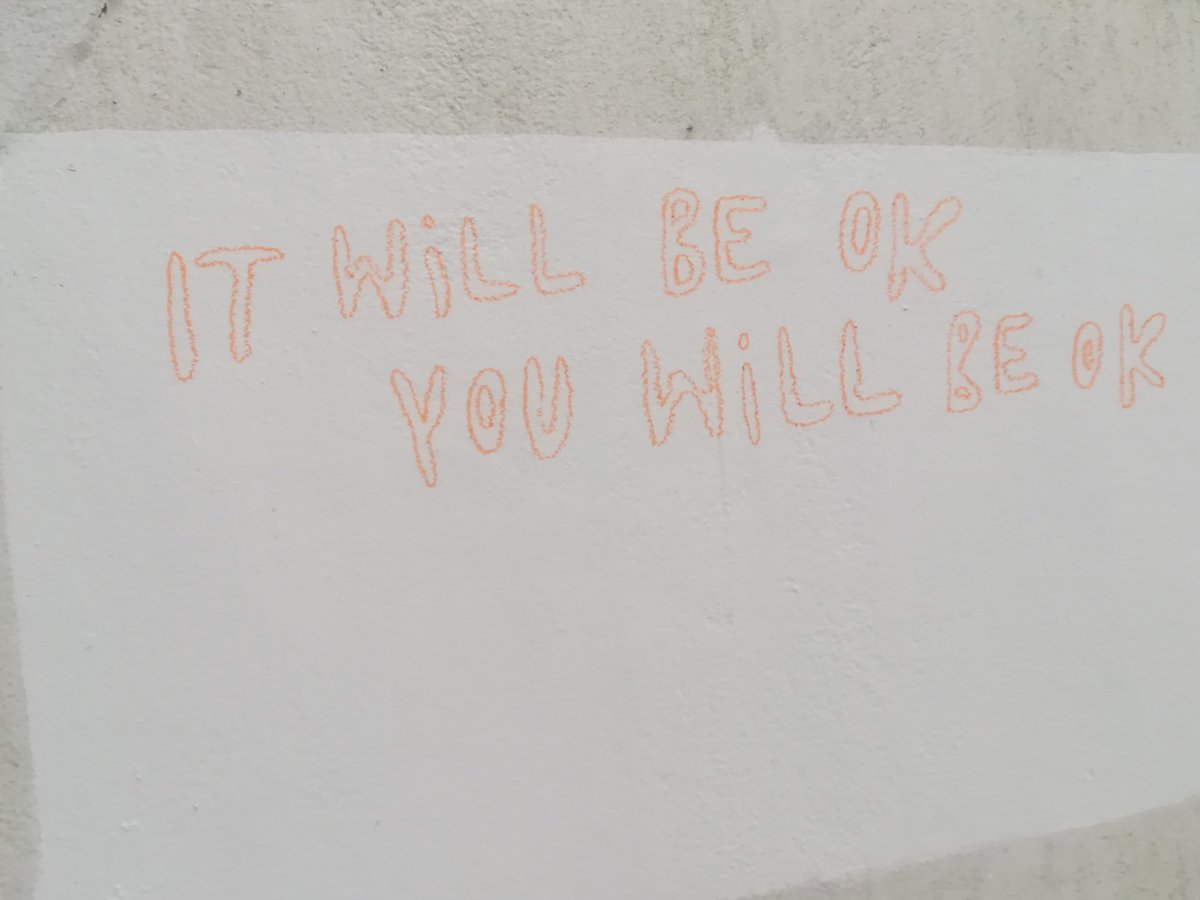 IT WiLL BE OK
YOU WiLL BE OK